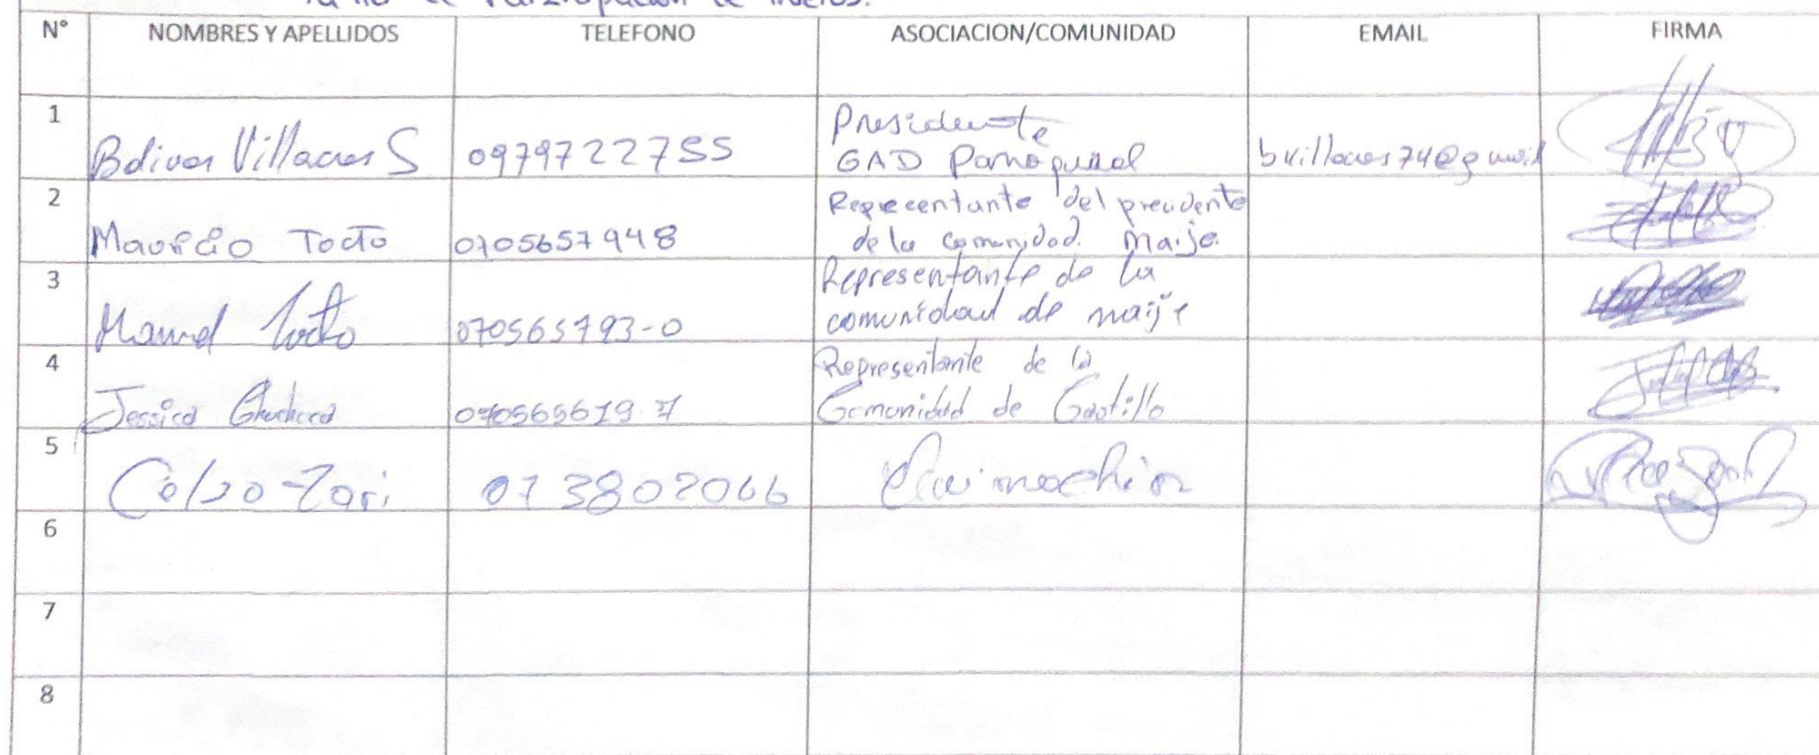 de Participación de
N° NOMBRES Y APELLIDOS TELEFONO ASOCIACION/COMUNIDAD EMAIL FIRMA
1 Bolivar Villacres S 0979722755 Presidente
GAD Parroquial bvillacres74@gmail
2 Mauricio Tocto 0705657948 Reprecentante del precidente
de la comunidad. Maije.
3 Manuel Tocto 070565793-0 Representante de la
comunidad de maije
4 Jessica 070565619-7 Representante de la
Comunidad de Gastillo
5 Celso 073802066
6
7
8